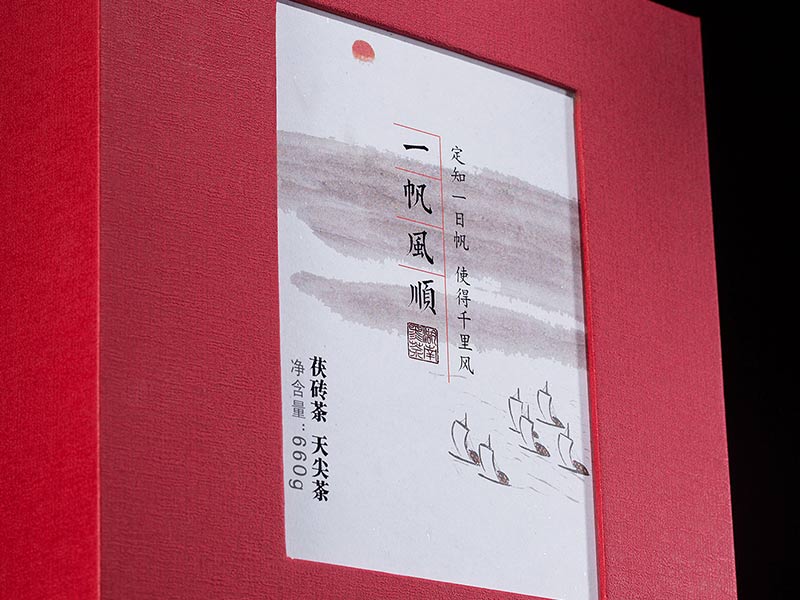 定知一日帆 使得千里风
一帆風順
湖南黑茶
茯砖茶 天尖茶
净含量:660g